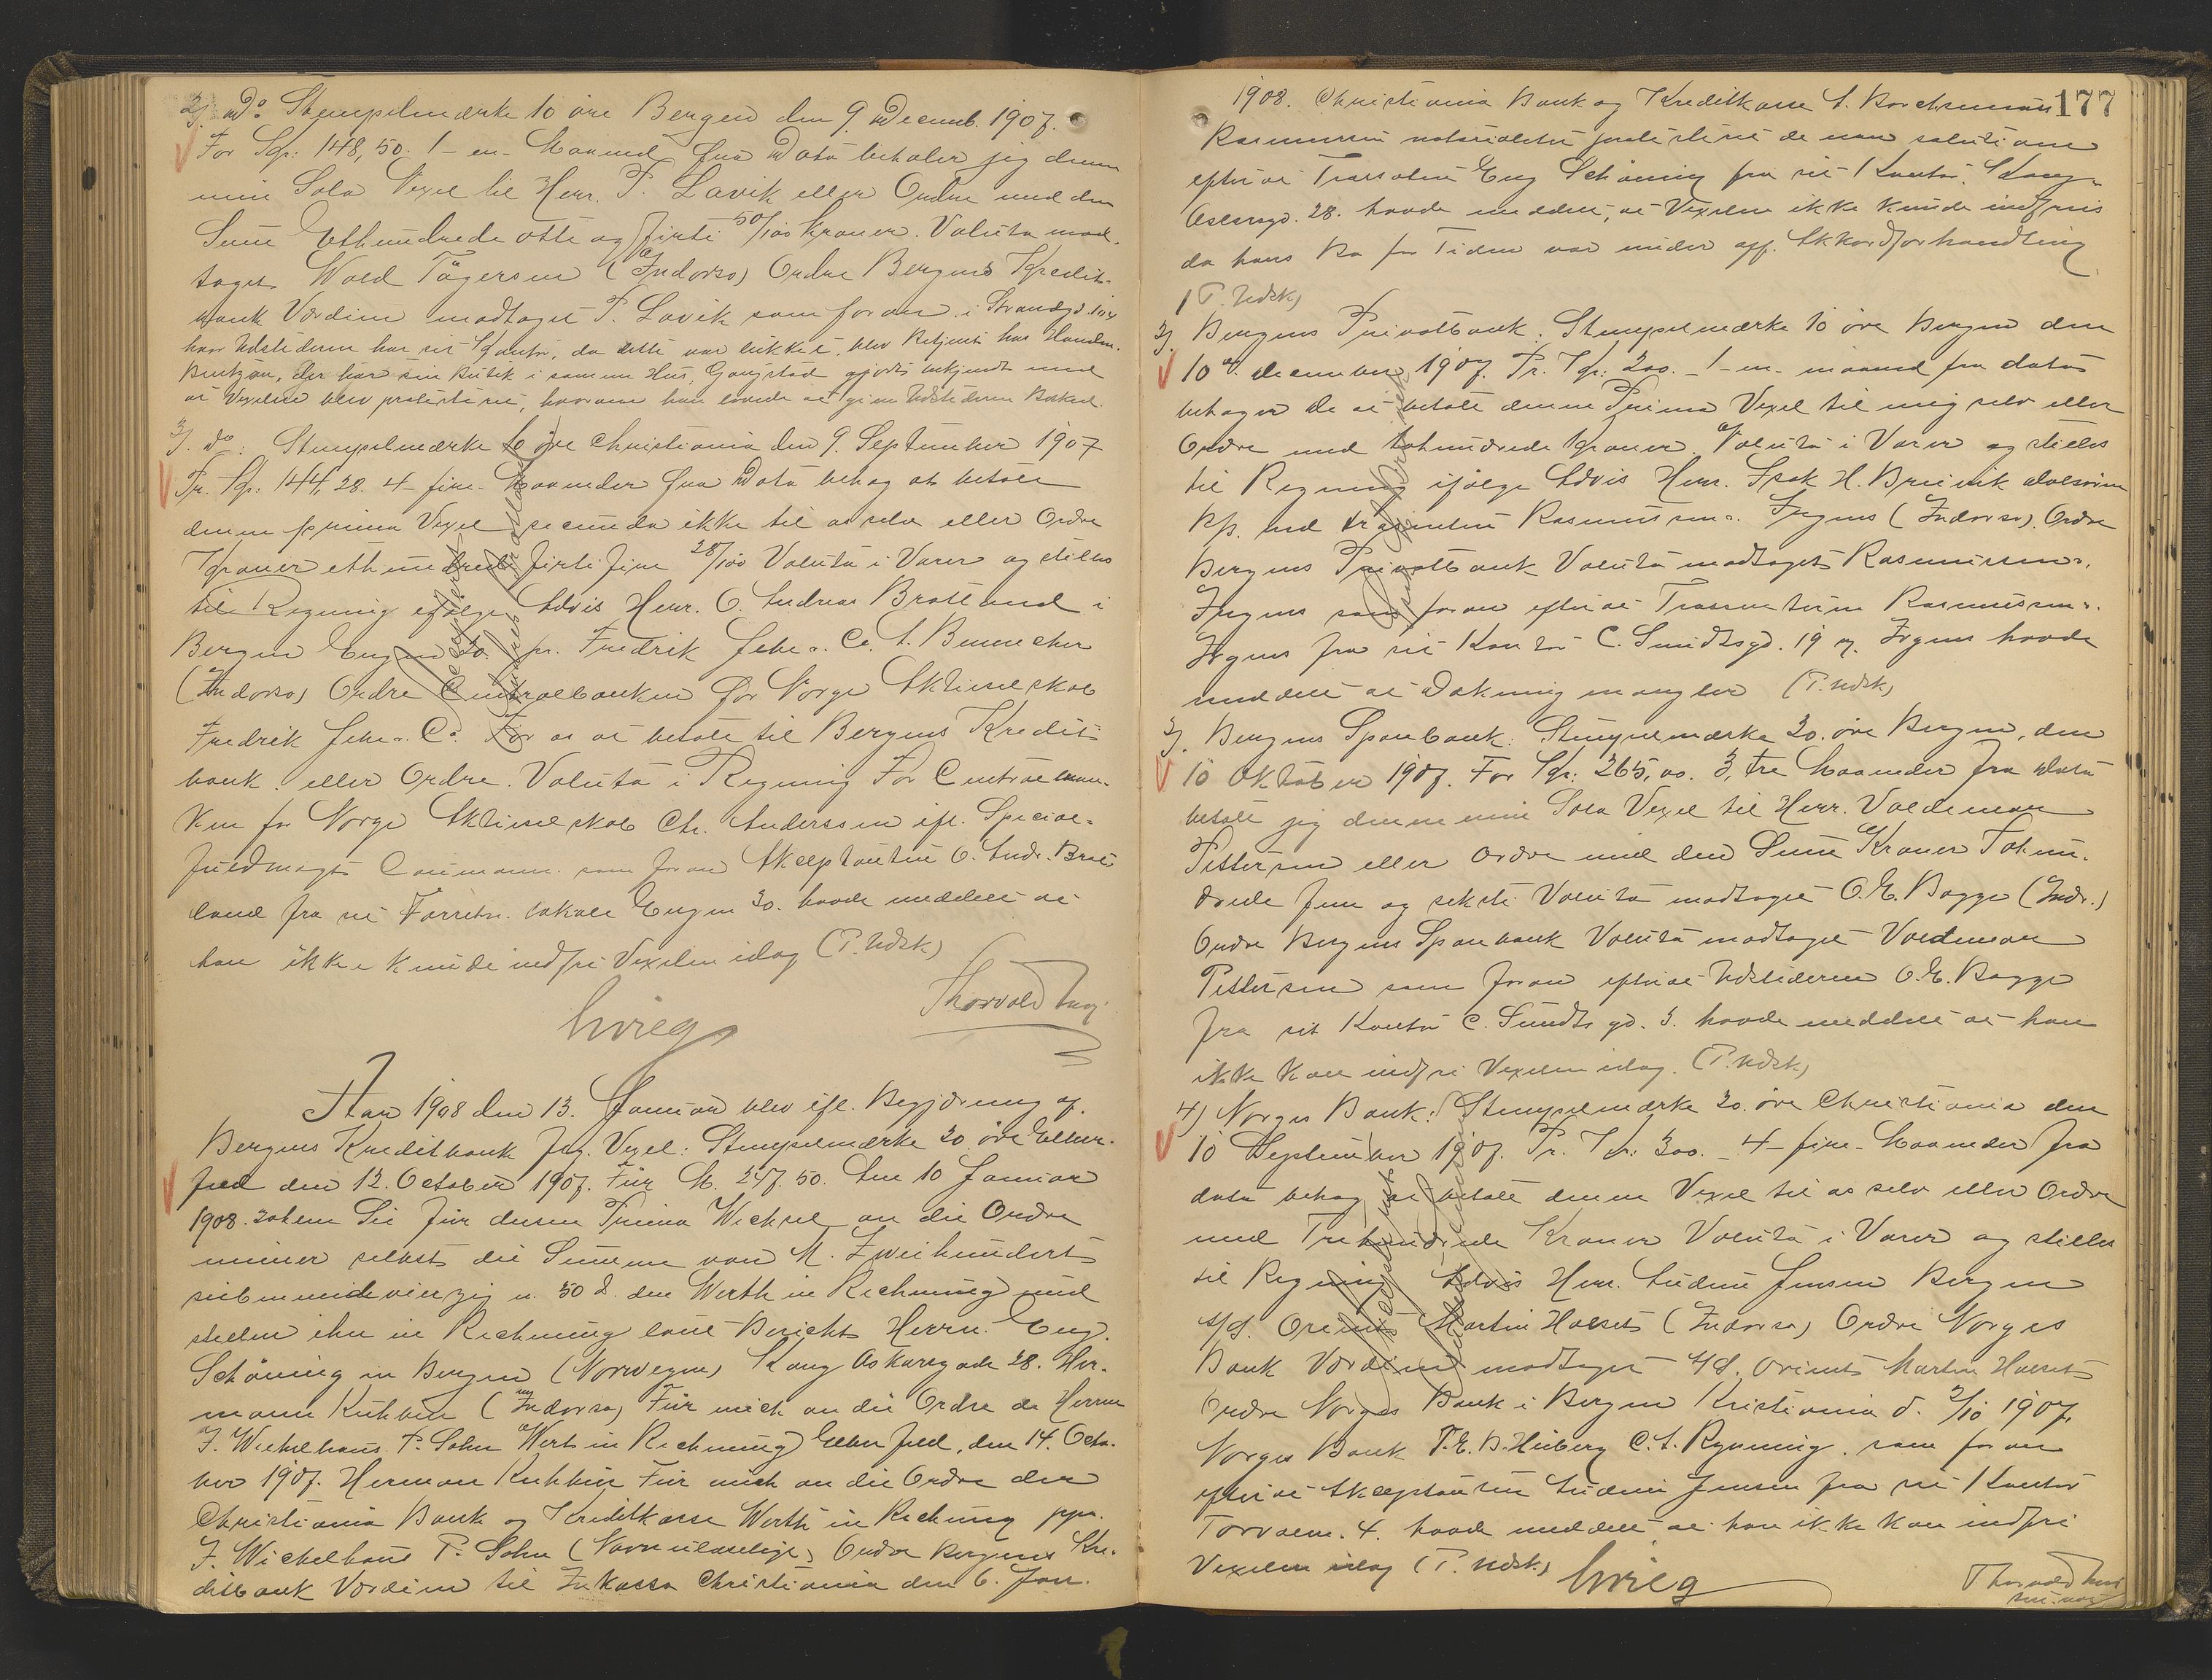 2) do Stempelmærke 10 øre Bergen den 9 Decemb. 1907.
For Kr: 148,50. 1 - en - Maaned fra Dato betaler jeg denne
min Sola Vexel til Herr. P. Lavik eller Ordre med den
Sum Ethundrede otte og firti 50/100 Kroner. Valuta mod-
taget Wold Tøgersen (Indorso) Ordre Bergens Kredit-
bank Værdien modtaget P. Lavik som foran i Strandgd.
hvor Udstederen har sit Kontor, da dette var lukket, blev Betjent hos Handm.
Bentzon, der har sin Butik i samme Hus, Gangstad gjort bekjendt med
at Vexelen blev protesteret, hvorom han lovede at give Udstederen Besked.
3) do: Stempelmærke 10 øre Christiania den 9. September 1907
Pr. Kr: 144,28. 4 - fire - Maaneder fra Dato behag at betale
denne prima Vexel secunda ikke til os selv eller Ordre
Kroner ethundrede firti fire 28/100 Valuta i Varer og stilles
til Regning ifølge Advis Herr. O. Andreas Bratland i
Bergen Engen 30. pr. Fredrik & Co. A. Bennecher
(Indorso) Ordre Centralbanken for Norge Aktieselskab
Fredrik & Co. For os at betale til Bergens Kredit-
bank eller Ordre. Valuta i Regning For Centralban-
ken for Norge Aktieselskab Chr. Anderssen ifl. Special-
fuldmagt som foran Akceptanten O. Andr. Brat-
land fra sit Forretn. lokale Engen 30. havde meddelt at
han ikke kunde indfri Vexelen idag (P. Udsk)
Thorvald
Aar 1908 den 13. Januar blev ifl. Begjæring af
Bergens Kreditbank flg. Vexel: Stempelmærke 20 øre Elber-
feld den 12. October 1907. Für M. 247.50. Am 10 Januar
1908 zahlen Sie für diesen Prima Wechsel an die Ordre
meiner selbst die Summe von M. Zweihundert
siebenundvierzig u. 50 d. den Werth in Rechnung und
stellen ihn in Rechnung laut Bericht Herrn. Eug.
Schöning in Bergen (Norwegen) Kong Oskarsgade 28. Her-
mann Kuhbier (Indorso) Für mich an die Ordre de Herren
J. Wichelhaus P. Sohn Werth in Rechnung) Elberfeld, den 14. Octo-
ber 1907. Herman Kuhbier Für mich an die Ordre der
Christiania Bank og Kreditkasse Werth in Rechnung ppa.
J. Wichelhaus P. Sohn (Navn ulæselige) Ordre Bergens Kre-
ditbank Værdien til Inkasso Christiania den 6. Jan.
177
1908. Christiania Bank og Kreditkasse A.
Rasmussen notarialiter protesteret de non solutione
efterat Trassaten Eug Schöning fra sit Kontor, Kong
Oscarsgd. 28. havde meddelt, at Vexelen ikke kunde indfries
da hans Bo for Tiden var under off. Akkordforhandling
(P. Udsk)
2) Bergens Privatbank: Stempelmærke 10 øre Bergen den
10 de december 1907. Pr. Kr: 200. - 1 - en - maaned fra dato
behager De at betale denne Prima Vexel til mig selv eller
Ordre med tohundrede Kroner. Valuta i Varer og stilles
til Regning ifølge Advis Herr. Isak H. Breivik
ved Rasmussen (Indorso). Ordre
Bergens Privatbank Valuta modtaget Rasmussen
som foran efterat Trassenterne Rasmussen
fra sit Kontor C. Sundtsgd. 19 havde
meddelt at Dækning mangler (P. Udsk)
3) Bergens Sparebank: Stempelmærke 20. øre Bergen, den
10 Oktober 1907. For Kr: 265,00. 3, tre Maaneder fra Dato
betale jeg denne min Sola Vexel til Herr. Valdemar
Pettersen eller Ordre med den Sum Kroner Tohun-
drede fem og seksti Valuta modtaget O. E. Bagge (Indr.)
Ordre Bergens Sparebank Valuta modtaget Valdemar
Pettersen som foran efterat Udstederen O. E. Bagge
fra sit Kontor C. Sundts gd. 3. havde meddelt at han
ikke kan indfri Vexelen idag. (P. Udsk)
4) Norges Bank: Stempelmærke 20. øre Christiania den
10 September 1907. Pr. Kr: 300. - 4 - fire - Maaneder fra
dato behag at betale denne Vexel til os selv eller Ordre
med Trehundrede Kroner Valuta i Varer og stilles
til Regning Advis Herr. Jensen Bergen
A/S. Orient Martin Halset (Indorso) Ordre Norges
Bank Værdien modtaget A/S. Orient Martin Halset
Ordre Norges Bank i Bergen Kristiania d. 2/10 1907.
Norges Bank T. E. B. Heiberg C. A. Rynning. som foran
efterat Akceptanten Jensen fra sit Kontor
Torvalm. 4. havde meddelt at han ikke kan indfri
Vexelen idag (P. Udsk.)
Thorvald